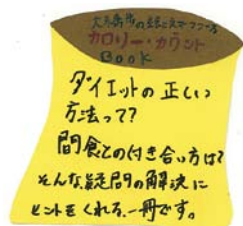 カロリー・カウント
BOOK
ダイエットの正しい
方法って?
間食との付き合い方は?
そんな疑問の解決に
ヒントをくれる一冊です。